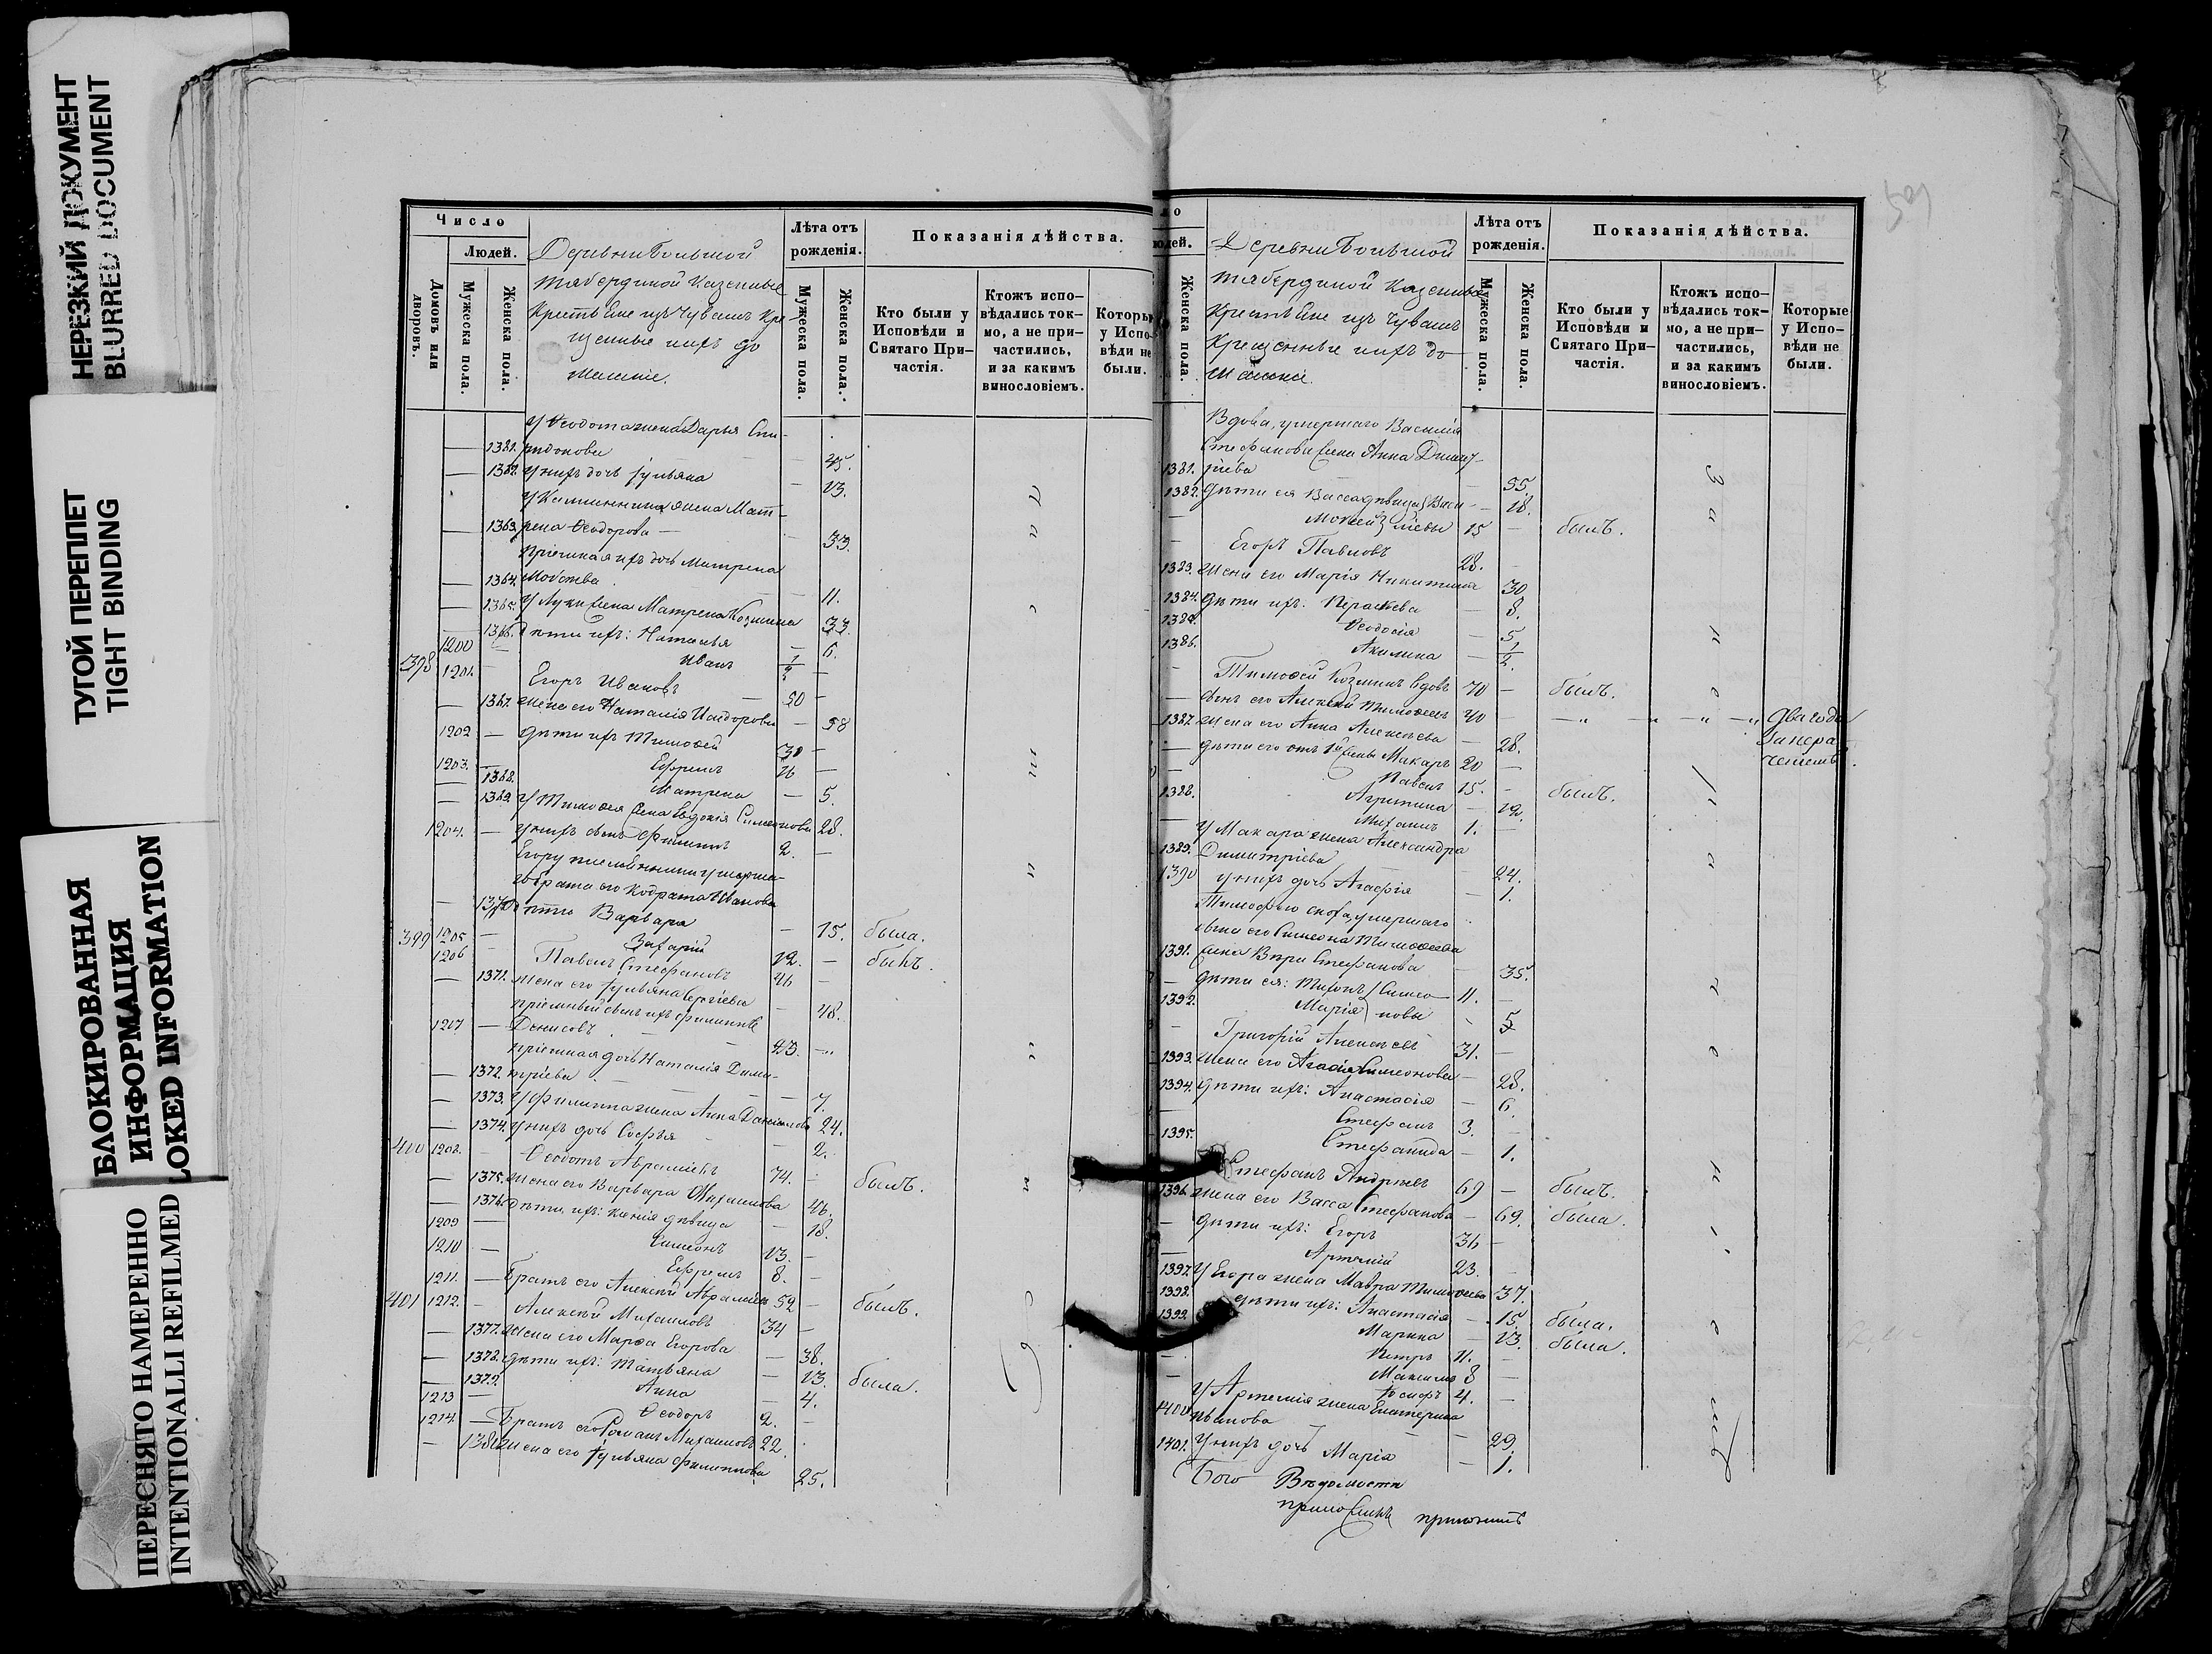 НЕРЕЗКИЙ ДОКУМЕНТ
BLURRED DOCUMENT
ТУГОЙ ПЕРЕПЛЕТ
TIGHT BINDING
БЛОКИРОВАННАЯ
ИНФОРМАЦИЯ
LOKED INFORMATION
ПЕРЕСНЯТО НАМЕРЕННО
INTENTIONALLI REFILMED
Число
Людей.
Домовъ или дворовъ.
Мужеска пола.
Женска пола.
Деревни Большой
Тябердиной Казенные
Крестьяне изъ Чувашъ Кре-
щенные ихъ до
машніе.
Лѣта отъ рожденія.
Мужеска пола.
Женска пола.
Показанія дѣйства.
Кто были у Исповѣди и Святаго При-частія.
Ктожъ испо-вѣдались ток-мо, а не при-частились, и за какимъ винословіемъ.
Которы у Испо-вѣди не были.
У Ѳеодота жена Дарья Спи-
1381. ридонова — 45.
1382. У нихъ дочь Іульяна — 13.
жена Мат-
1363. рена Ѳеодорова — 33.
Пріемная ихъ дочь Матрена
1364. — 11.
1365. У Луки жена Матрена Козмина 33.
1366. Дѣти ихъ: Наталья — 6.
1200 — Иванъ 1/2 —
398 1201. Егоръ Ивановъ 50 —
1367. жена его Наталія Исидорова — 58
1202 — дѣти ихъ Тимоѳей 30 —
1203. — Ефремъ 16 —
1368. Матрена — 5.
1369. У Тимоѳея жена Евдокія Симеонова 28.
1204. — У нихъ сынъ Филиппъ 2. —
Егору племянники умерша-
го брата его Кодрата Иванова
1370 дѣти Варвара — 15. была.
1205 — Захарій 12. — былъ.
399 1206 Павелъ Стефановъ 46 —
1371. жена его Іульяна Сергіева — 48.
пріемный сынъ ихъ Филиппъ
1207 — Денисовъ 23. —
пріемная дочь Наталія Дими-
1372. тріева — 7.
1373. У Филиппа жена Анна Даніилова 24.
1374. У нихъ дочь Софья — 2.
400 1208. Ѳеодотъ Аврамиевъ 74. — былъ.
1375. жена его Варвара Михаилова — 46.
1376. Дѣти ихъ: Ксенія дѣвица — 18.
1209 — Симеонъ 13. —
1210 — Ефремъ 8. —
1211. — Братъ его Алексѣй Аврамиевъ 52 — былъ.
401 1212. Алексѣй Михаиловъ 34 —
1377. жена его Марѳа Егорова — 38.
1378. дѣти ихъ: Татьяна — 13. была.
1379. Анна — 4.
1213 — Ѳеодоръ 2. —
1214. — Братъ его Романъ Михаиловъ 22.
1380 жена его Іульяна Филиппова 25.
509
ло
юдей.
Женска пола.
Деревни Большой
Тябердиной Казенные
Крестьяне изъ Чувашъ
Крещенные ихъ до
машніе.
Лѣта отъ рожденія.
Мужеска пола.
Женска пола.
Показанія дѣйства.
Кто были у Исповѣди и Святаго При-частія.
Ктожъ испо-вѣдались ток-мо, а не при-частились, и за какимъ винословіемъ.
Которые у Испо-вѣди не были.
Вдова, умершаго Василія
Стефанова жена Анна Димит-
1381. ріева — 55.
1382. Дѣти ея Васса дѣвица Васи- — 18.
Моисей ліевы 15 — былъ.
Егоръ Павловъ 28. —
1383. жена его Марія Никитина 30
1384. дѣти ихъ: Параскева — 8.
1385. Ѳеодосія — 5
1386. Акилина — 1/2.
Тимоѳей Козминъ вдовъ 70 — былъ.
— сынъ его Алексѣй Тимоѳеевъ 40 — — „ — „ — „ — „ два года
1387. жена его Анна Алексѣева — 28.
— дѣти его отъ 1й жены Макаръ 20 —
Павелъ 15. — былъ.
1388. Агрипина — 12.
Михаилъ 1. —
У Макара жена Александра
1389. Димитріева — 24.
1390 У нихъ дочь Агафія — 1.
Тимофею сноха, умершаго
сына его Симеона Тимоѳеева
1391. жена Вѣра Стефанова — 35.
дѣти ея: Тихонъ Симео- 11. —
1392. Марія новы — 5
Григорій Алексѣевъ 31. —
1393. жена его Агафія Симеонова — 28.
1394. дѣти ихъ: Анастасія — 6.
Стефанъ 3. —
1395. Стефанида — 1.
Стефанъ Андреевъ 69 — былъ.
1396. жена его Васса Стефанова — 69. была.
дѣти ихъ: Егоръ 36 —
Артемій 23. —
1397. У Егора жена Мавра Тимоѳеева 37.
1398. дѣти ихъ: Анастасія — 15. была.
1399. Марина — 13. была.
Петръ 11. —
Максимъ 8 —
Іосифъ 4. —
У Артемія жена Екатерина
1400 Иванова — 29.
1401. У нихъ дочь Марія — 1.